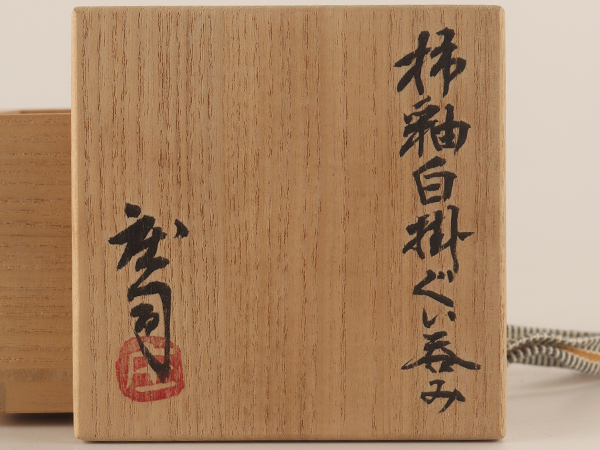 柿釉白掛ぐい呑み
庄司
庄